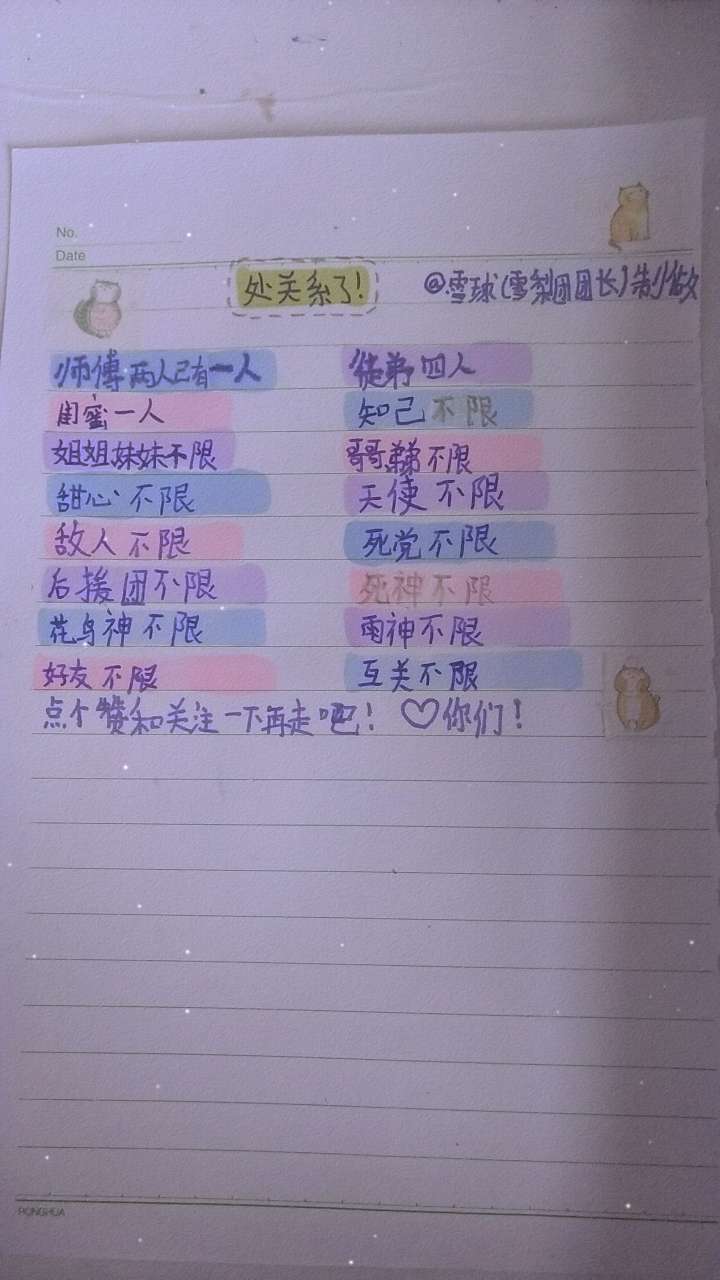 No.
Date
处关系了！ @雪球(雪梨团团长)制做
师傅两人已有一人 徒弟四人
闺蜜一人 知己不限
姐姐妹妹不限 哥哥弟弟不限
甜心不限 天使不限
敌人不限 死党不限
后援团不限 死神不限
花鸟神不限 雨神不限
好友不限 互关不限
点个赞和关注一下再走吧！♡你们！
RONGHUA